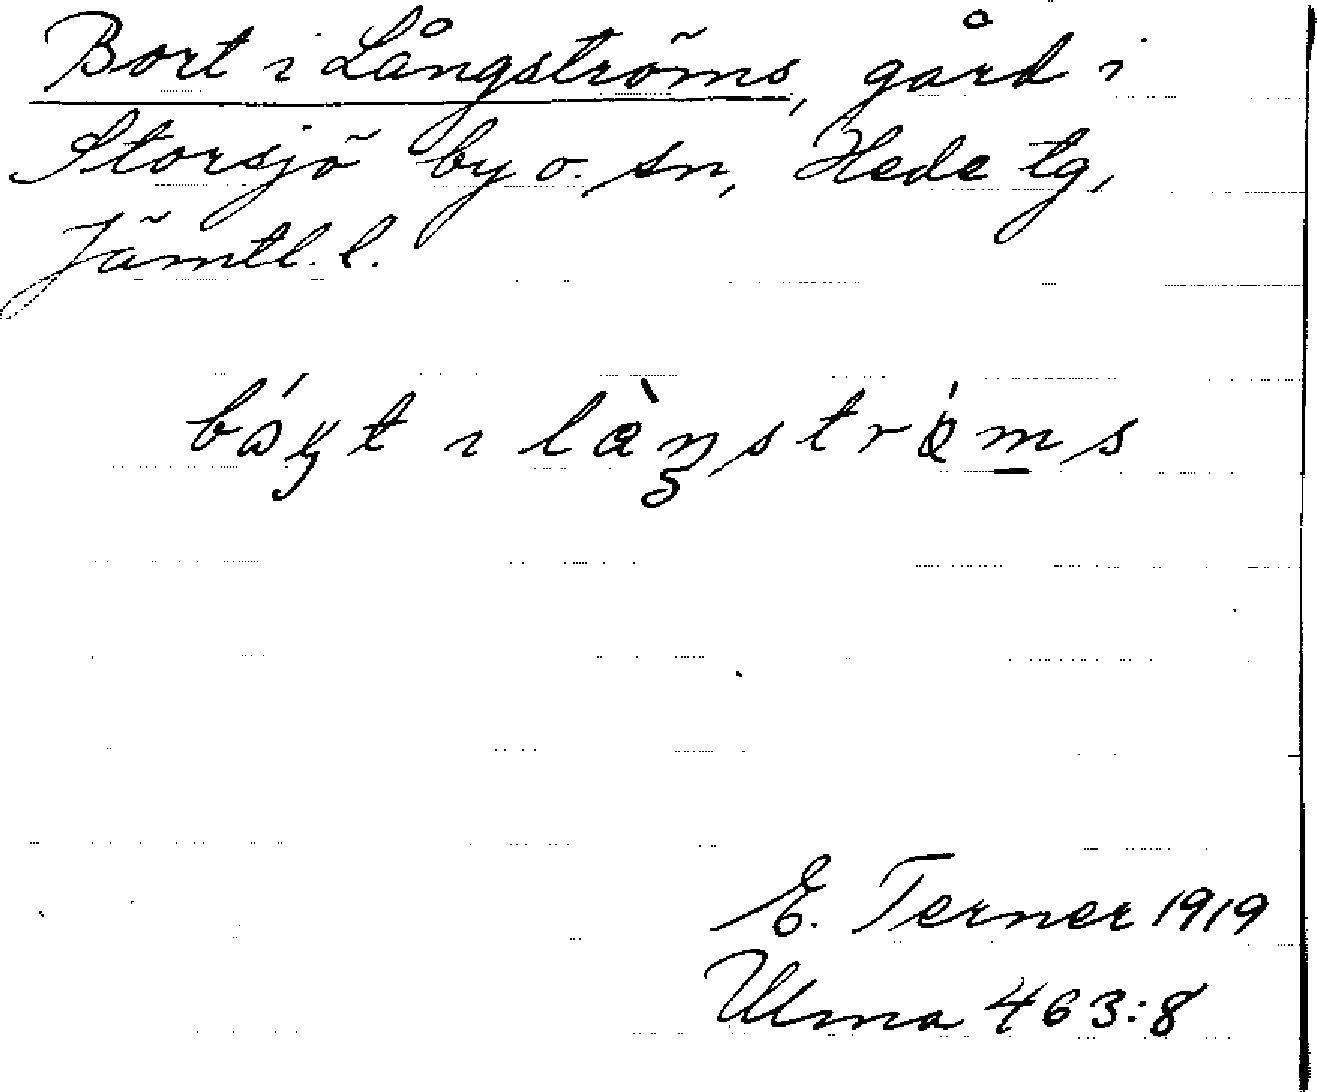 Bort i Långströms, gård i
Storsjö by o. sn, Hede tg,
Jämtl. l.
i
E. Terner 1919
Ulma 463:8